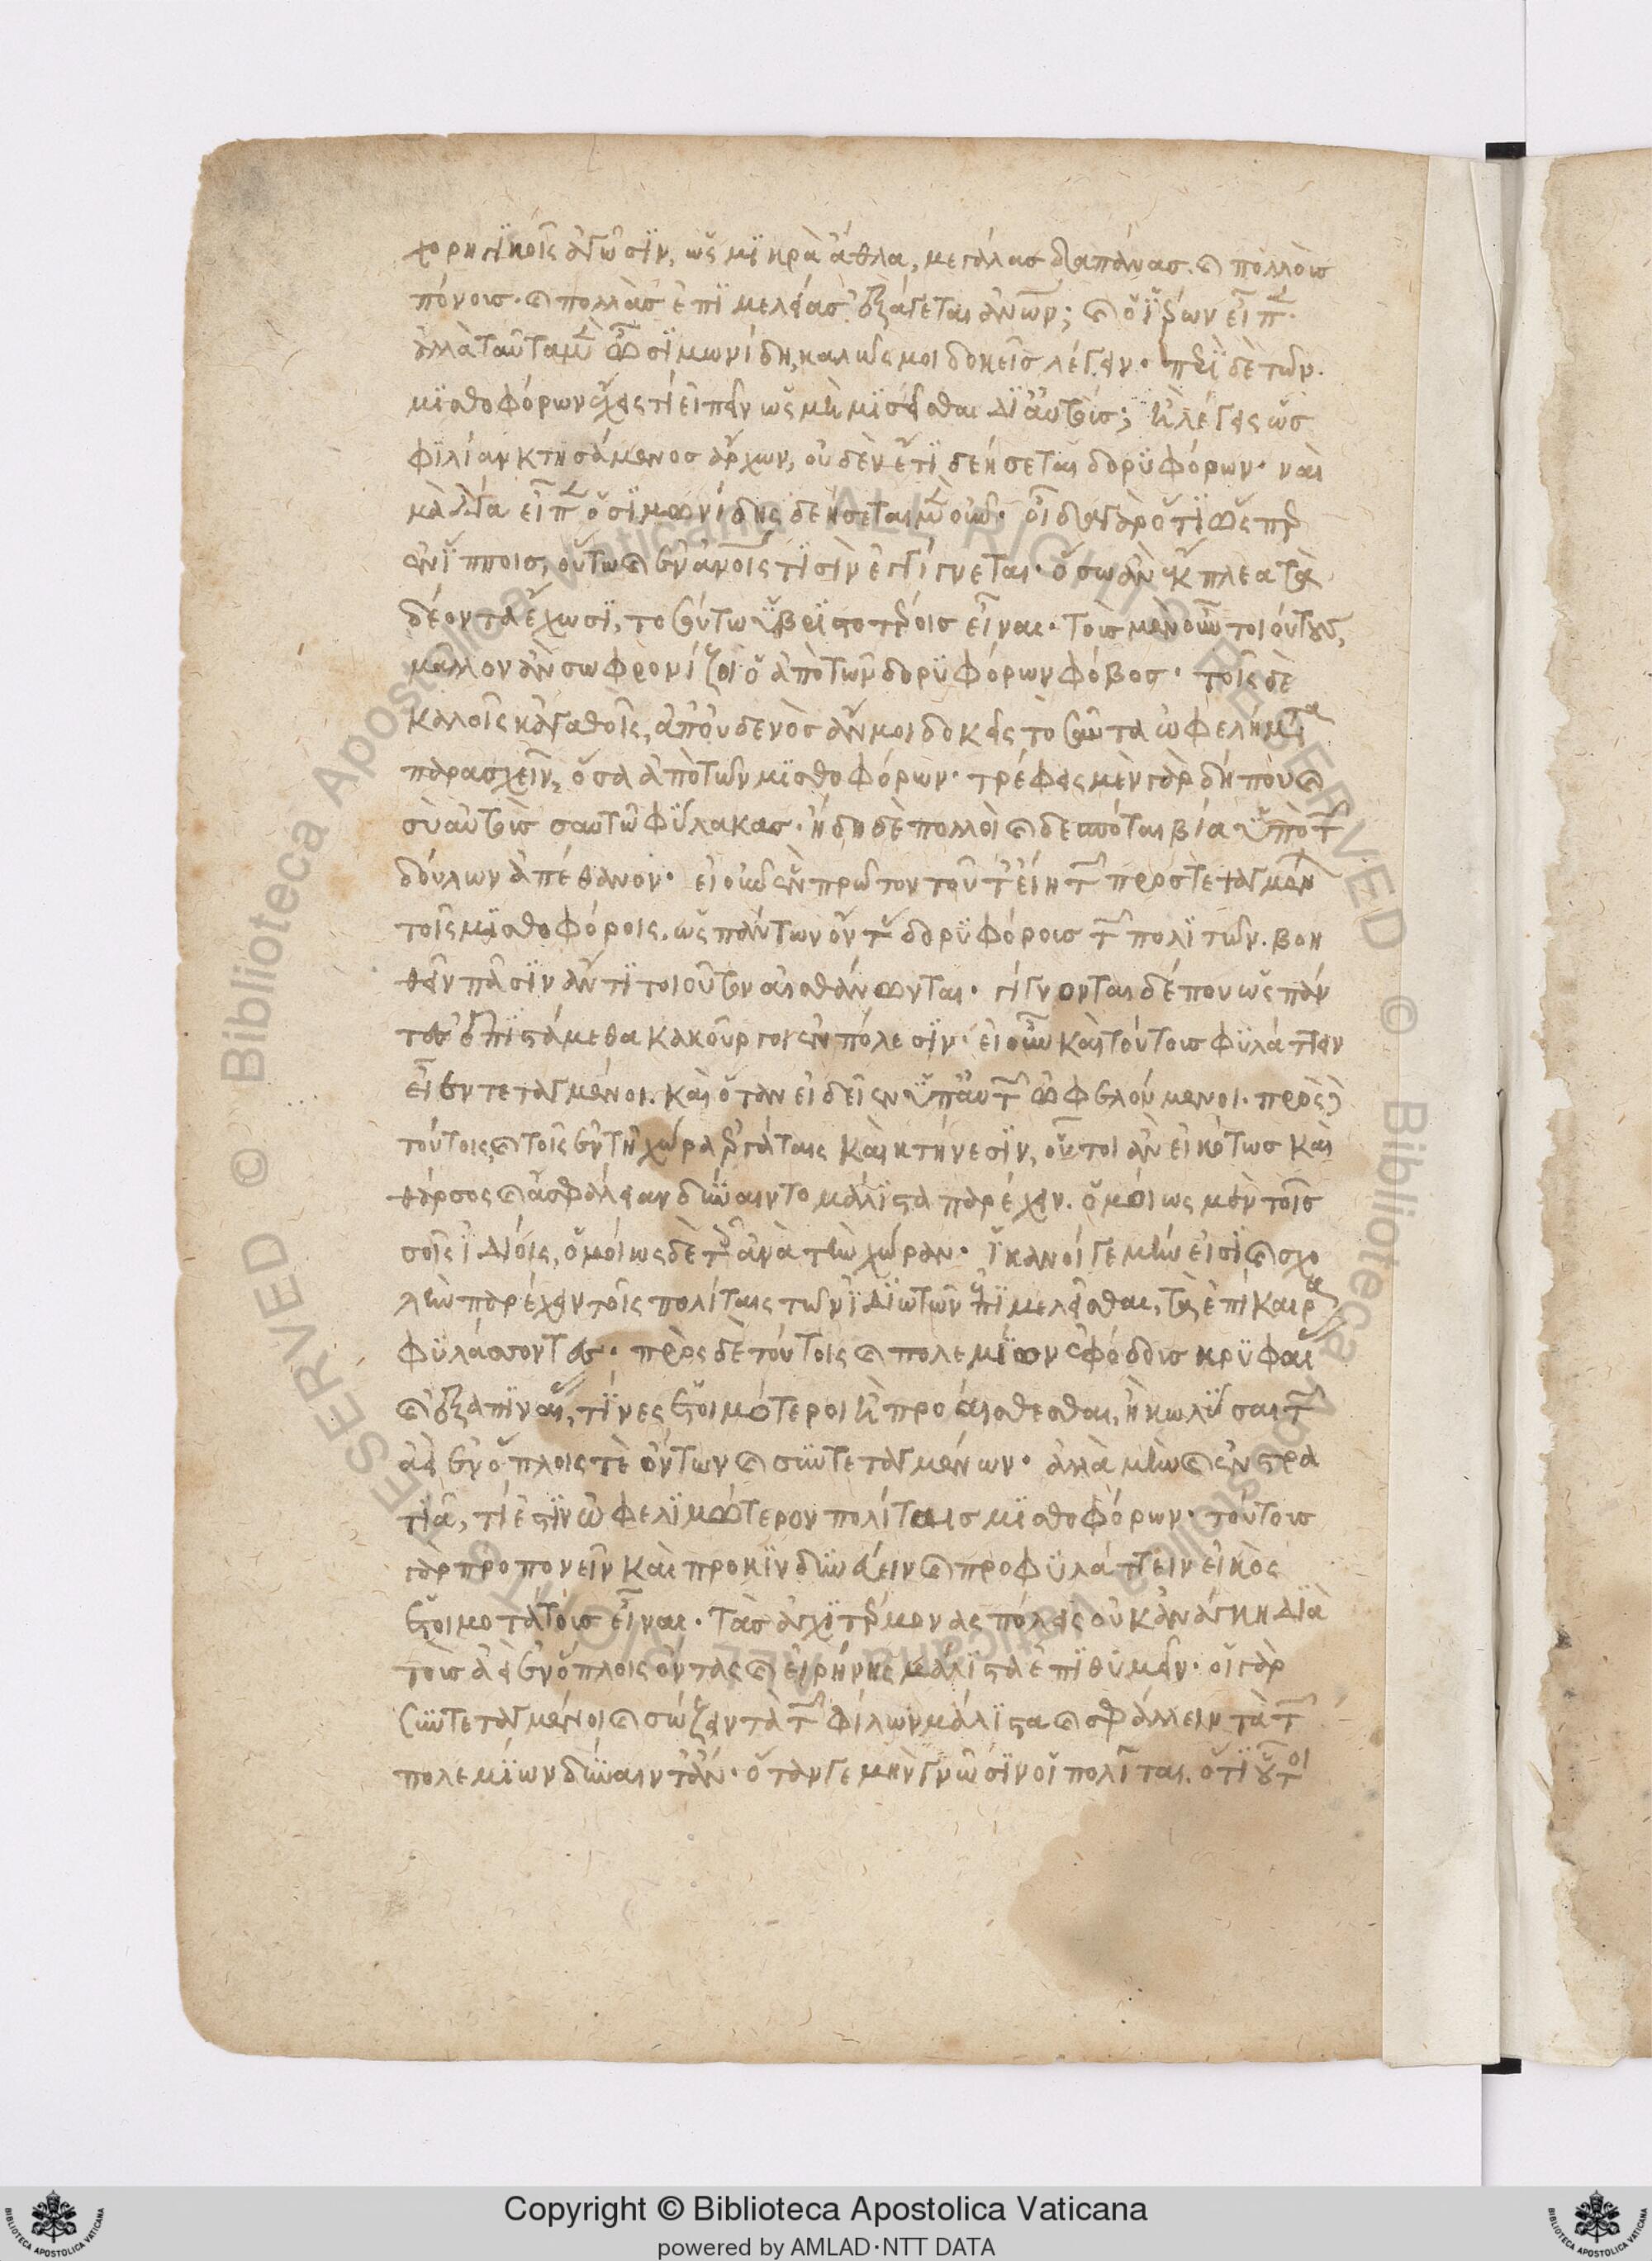 χορηγικοῖς ἀγῶσιν, ὡς μικρὰ ἆθλα, μεγάλας δαπάνας. καὶ πολλοὺς
πόνους. καὶ πολλὰς ἐπιμελείας ἐξάγεται ἀνων; καὶ ὁ ἱέρων εἶπ.
ἀλλὰ ταῦτα μὲν ὦ σιμωνίδη, καλῶς μοι δοκεῖς λέγειν. περὶ δὲ τῶν.
μισθοφόρων ἔχεις τί εἰπεῖν ὡς μὴ μισεῖσθαι δι αὐτούς; ἢ λέγεις ὡς
φιλίαν κτησάμενος ἄρχων, οὐδὲν ἔτι δεήσεται δορυφόρων. ναὶ
μὰ δία εἶπ ὁ σιμωνίδης δεήσεται μὲν οὖν. οἶδα γὰρ ὅτι ὥσπερ
ἐν ἵπποις, οὕτω καὶ ἐν ἀνοις τισὶν ἐγγίγνεται. ὅσω ἂν ἔκπλεα τὰ
δέοντα ἔχωσι, τοσούτω ὑβριστοτέροις εἶναι. τοὺς μὲν οὖν τοιούτους,
μᾶλλον ἂν σωφρονίζοι ὁ ἀπὸ τῶν δορυφόρων φόβος. τοῖς δὲ
καλοῖς κἀγαθοῖς, ἀπ οὐδενὸς ἄν μοι δοκεῖς τοσαῦτα ὠφελήματα
παρασχεῖν, ὅσα ἀπὸ τῶν μισθοφόρων. τρέφεις μὲν γὰρ δήπου καὶ
σὺ αὐτοὺς σαυτῶ φύλακας. ἤδη δὲ πολλοὶ καὶ δεσπόται βία ὑπὸ τῶν
δούλων ἀπέθανον. εἰ οὖν ἓν πρῶτον τοῦτ εἴη τῶν προστεταγμένων
τοῖς μισθοφόροις. ὡς πάντων ὄντας δορυφόρους τῶν πολιτῶν. βοη
θεῖν πᾶσιν ἄν τι τοιοῦτον αἰσθάνωνται. γίγνονται δέ που ὡς πάν
τες ἐπιστάμεθα κακοῦργοι ἐν πόλεσιν. εἰ οὖν καὶ τούτους φυλάττειν
εἶεν τεταγμένοι. καὶ τοῦτ ἂν εἰδεῖεν ὑπ αὐτῶν ὠφελούμενοι. πρὸς δὲ
τούτοις, καὶ τοῖς ἐν τῆ χώρα ἐργάταις καὶ κτήνεσιν, οὗτοι ἂν εἰκότως καὶ
θάρσος καὶ ἀσφάλειαν δύναιντο μάλιστα παρέχειν. ὁμοίως μὲν τοῖς
σοῖς ἰδίοις, ὁμοίως δὲ τοῖς ἀνὰ τὴν χώραν. ἱκανοί γε μήν εἰσι καὶ σχο
λὴν παρέχειν τοῖς πολίταις τῶν ἰδίων τῶν ἐπιμελεῖσθαι, τὰ ἐπίκαιρα
φυλάσσοντες. πρὸς δὲ τούτοις καὶ πολεμίων ἐφόδους κρυφαίας
καὶ ἐξαπιναίας, τίνες ἑτοιμότεροι ἢ προαισθέσθαι, ἢ κωλῦσαι τῶν
ἀεὶ ἐν ὅπλοις τε ὄντων καὶ συντεταγμένων. ἀλλὰ μὴν καὶ ἐν στρα
τιᾶ, τί ἐστιν ὠφελιμώτερον πολίταις μισθοφόρων. τούτους
γὰρ προπονεῖν καὶ προκινδυνεύειν καὶ προφυλάττειν εἰκὸς
ἑτοιμοτάτους εἶναι. τὰς ἀγχιτέρμονας πόλεις οὐκ ἀνάγκη διὰ
τοὺς ἀεὶ ἐν ὅπλοις ὄντας καὶ εἰρήνης μάλιστα ἐπιθυμεῖν. οἱ γὰρ
συντεταγμένοι καὶ σώζειν τὰ τῶν φίλων μάλιστα καὶ σφάλλειν τὰ τῶν
πολεμίων δύναιντ ἄν. ὅταν γε μὴν γνῶσιν οἱ πολῖται. ὅτι οὗτοι
Copyright © Biblioteca Apostolica Vaticana
powered by AMLAD·NTT DATA